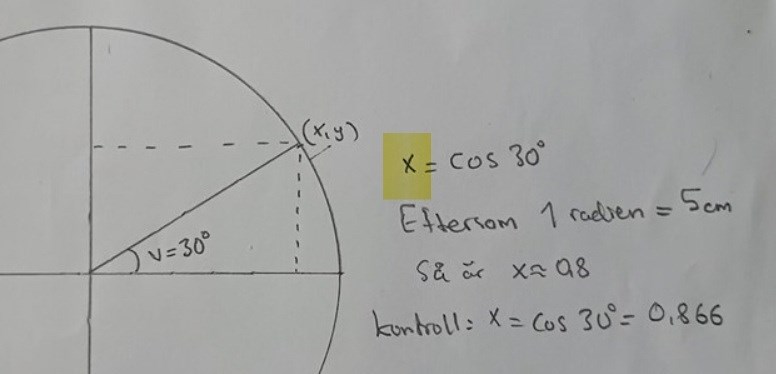 (x,y)
x = cos 30°
Eftersom 1 radien = 5cm
v=30°
Så är x≈ 0,8
kontroll: x = cos 30° = 0,866